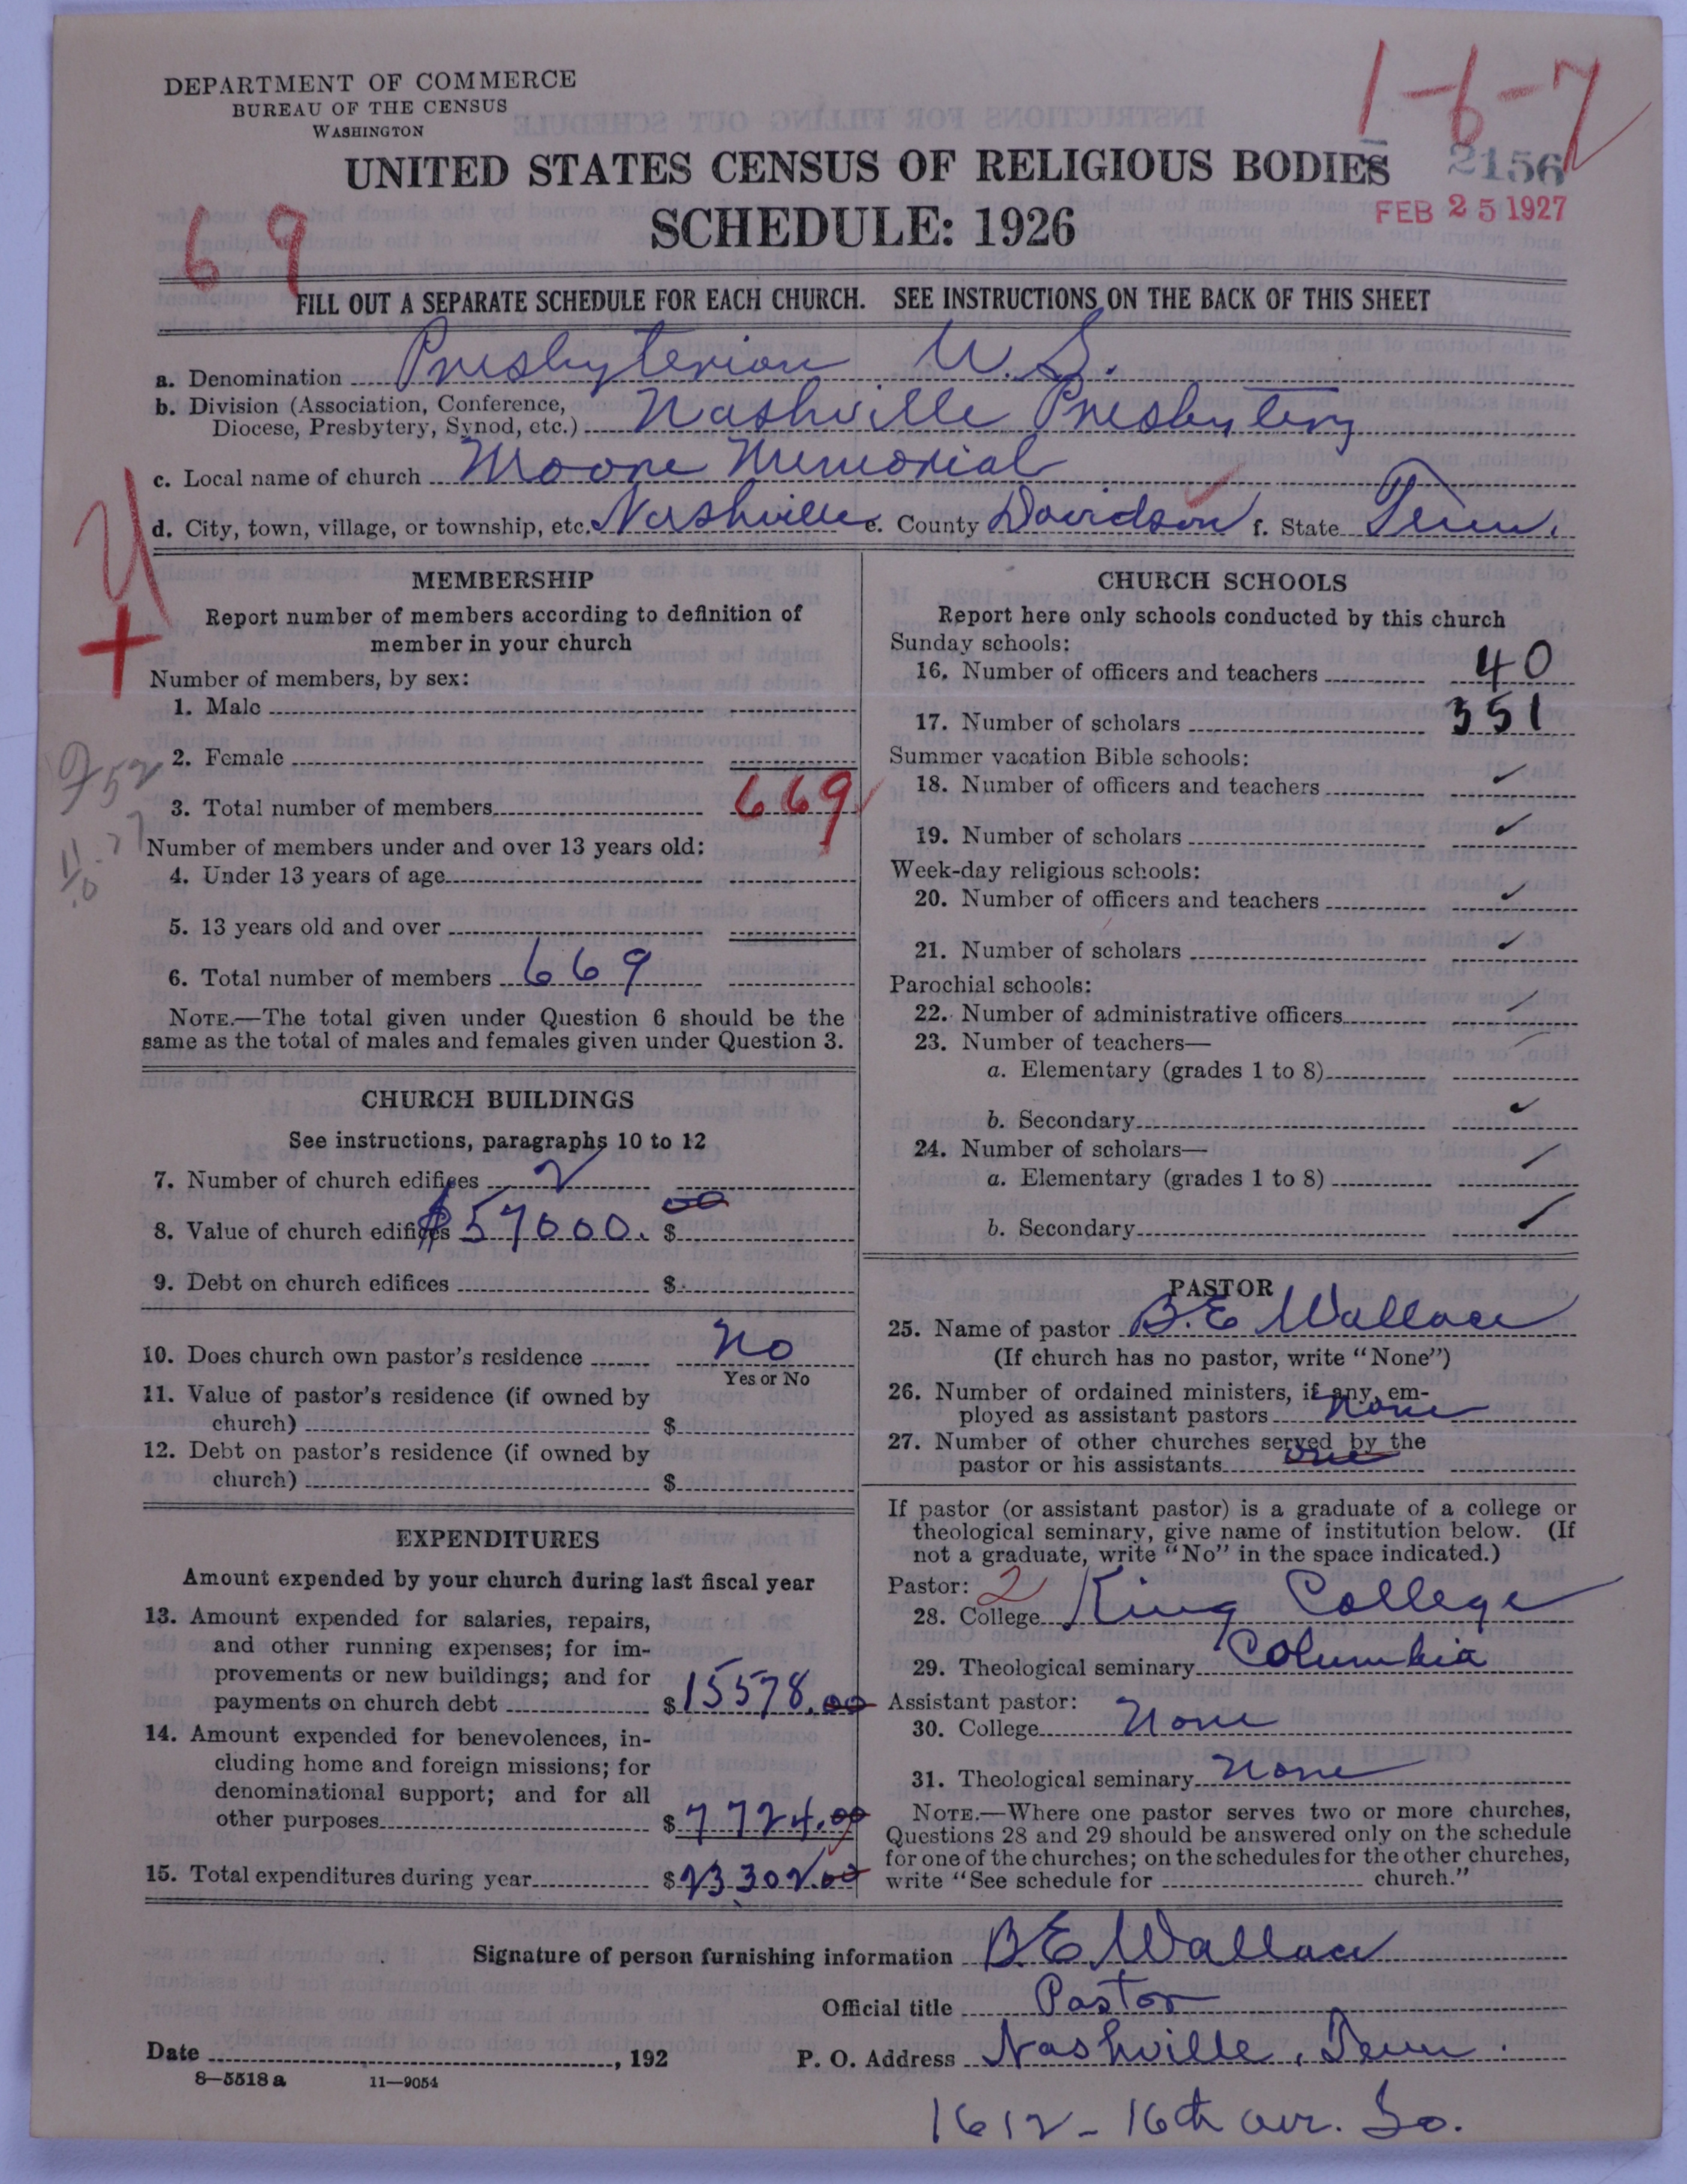 DEPARTMENT OF COMMERCE
BUREAU OF THE CENSUS
WASHINGTON
1-6-7
UNITED STATES CENSUS OF RELIGIOUS BODIES
2156
SCHEDULE: 1926
FEB 25 1927
69
FILL OUT A SEPARATE SCHEDULE FOR EACH CHURCH. SEE INSTRUCTIONS ON THE BACK OF THIS SHEET
a. Denomination Presbyterian U.S.
b. Division (Association, Conference, Diocese, Presbytery, Synod, etc.) Nashville Presbytery
c. Local name of church Moore Memorial
d. City, town, village, or township, etc. Nashville e. County Davidson f. State Tenn.
MEMBERSHIP
Report number of members according to definition of
member in your church
Number of members, by sex:
1. Male
2. Female
3. Total number of members 669
Number of members under and over 13 years old:
4. Under 13 years of age
5. 13 years old and over
6. Total number of members 669
NOTE.—The total given under Question 6 should be the
same as the total of males and females given under Question 3.
CHURCH BUILDINGS
See instructions, paragraphs 10 to 12
7. Number of church edifices 2
8. Value of church edifices $57000. $ 00
9. Debt on church edifices $
10. Does church own pastor's residence No
Yes or No
11. Value of pastor's residence (if owned by
church) $
12. Debt on pastor's residence (if owned by
church) $
EXPENDITURES
Amount expended by your church during last fiscal year
13. Amount expended for salaries, repairs,
and other running expenses; for im-
provements or new buildings; and for
payments on church debt $15578.00
14. Amount expended for benevolences, in-
cluding home and foreign missions; for
denominational support; and for all
other purposes $7724.00
15. Total expenditures during year $23302.00
CHURCH SCHOOLS
Report here only schools conducted by this church
Sunday schools:
16. Number of officers and teachers 40
17. Number of scholars 351
Summer vacation Bible schools:
18. Number of officers and teachers ✓
19. Number of scholars ✓
Week-day religious schools:
20. Number of officers and teachers ✓
21. Number of scholars ✓
Parochial schools:
22. Number of administrative officers ✓
23. Number of teachers—
a. Elementary (grades 1 to 8) ✓
b. Secondary ✓
24. Number of scholars—
a. Elementary (grades 1 to 8) ✓
b. Secondary ✓
PASTOR
25. Name of pastor B.E. Wallace
(If church has no pastor, write "None")
26. Number of ordained ministers, if any, em-
ployed as assistant pastors None
27. Number of other churches served by the
pastor or his assistants one
If pastor (or assistant pastor) is a graduate of a college or
theological seminary, give name of institution below. (If
not a graduate, write "No" in the space indicated.)
Pastor: 2
28. College King College
29. Theological seminary Columbia
Assistant pastor:
30. College None
31. Theological seminary None
NOTE.—Where one pastor serves two or more churches,
Questions 28 and 29 should be answered only on the schedule
for one of the churches; on the schedules for the other churches,
write "See schedule for church."
Signature of person furnishing information B.E. Wallace
Official title Pastor
Date , 192 P. O. Address Nashville, Tenn.
8—5518 a 11—9054
1612 - 16th ave. So.